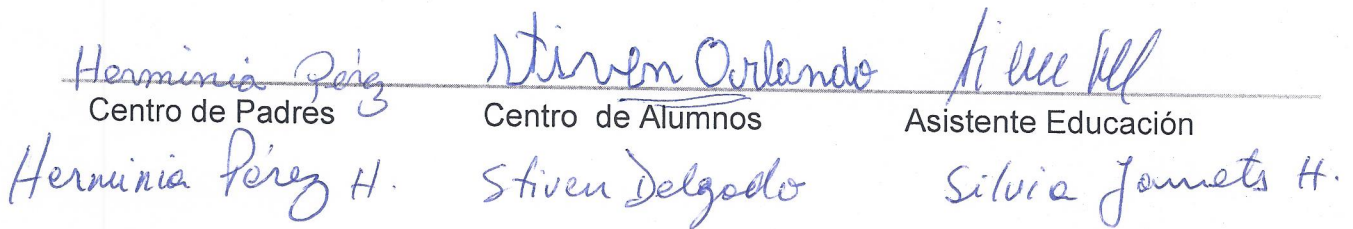 Herminia Pérez Stiven Orlando
Centro de Padres Centro de Alumnos Asistente Educación
Herminia Pérez H. Stiven Delgado Silvia H.